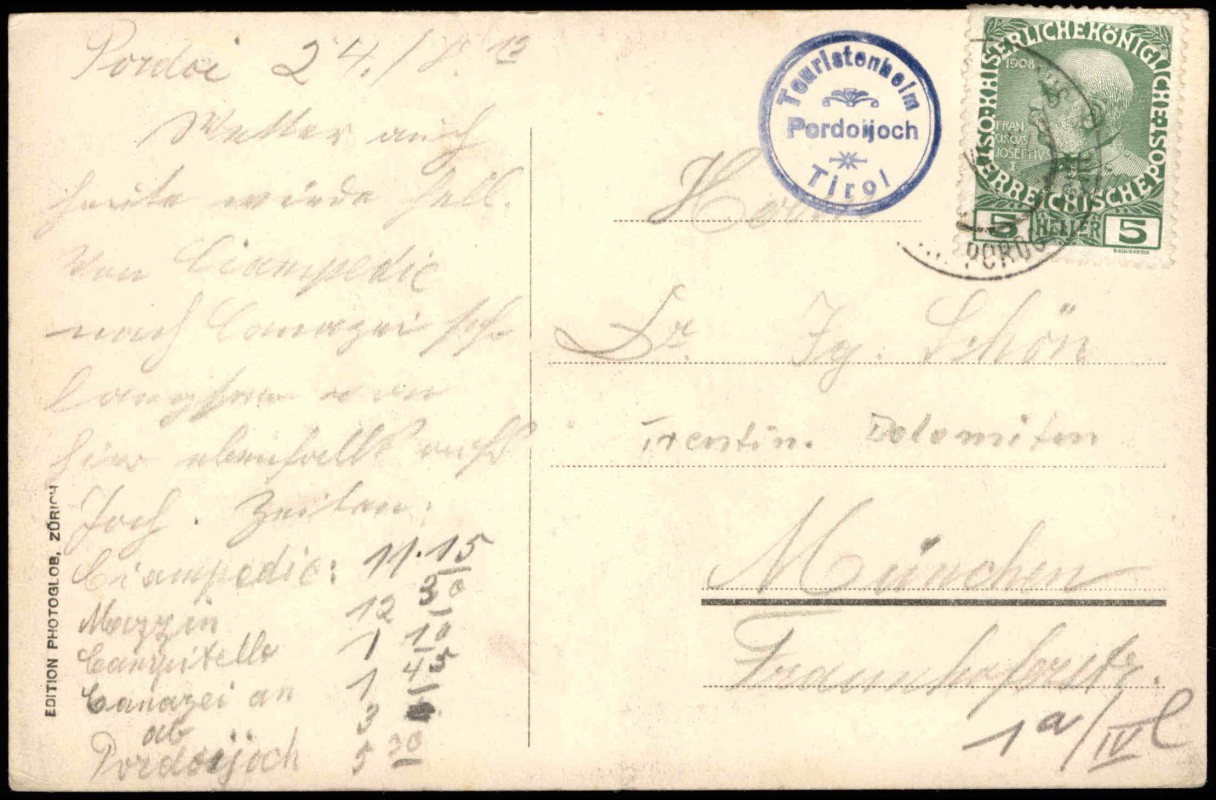 Pordoi 24./8. 13
Wetter auch
heute wieder hell.
Von Ciampedic
nach Canazei sch
langsam von
hier ebenfalls aufs
Joch. Zeiten:
Ciampedic: 11.15
Mazzin 12 30
Campitello 1 10
Canazei an 1 45
ab 3
Pordoijoch 5 30
EDITION PHOTOGLOB, ZÜRICH
Touristenheim
Pordoijoch
Tirol
KAISERLICHE KÖNIGLICHE ÖSTERREICHISCHE POST
1908
FRAN
CISCVS
IOSEPHVS
I
5 HELLER 5
PORDO
Herrn
Dr. Ig. Schön
Trentin. Dolomiten
München
Fraunhoferstr.
1a/IV l